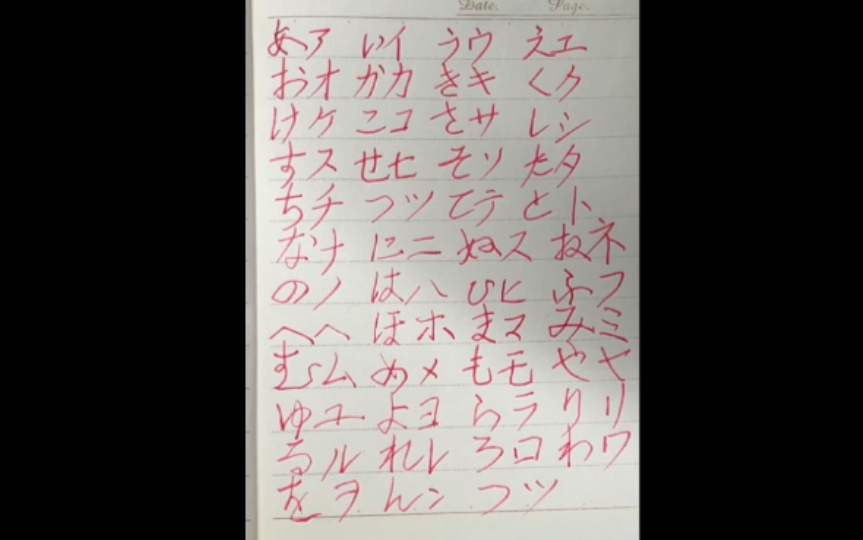 Date. Page.
あア いイ うウ えエ
おオ がカ きキ くク
けケ こコ さサ しシ
すス せセ そソ たタ
ちチ つツ てテ とト
なナ にニ ぬヌ ねネ
のノ はハ ひヒ ふフ
へヘ ほホ まマ みミ
むム めメ もモ やヤ
ゆユ よヨ らラ りリ
るル れレ ろロ わワ
をヲ んン つツ